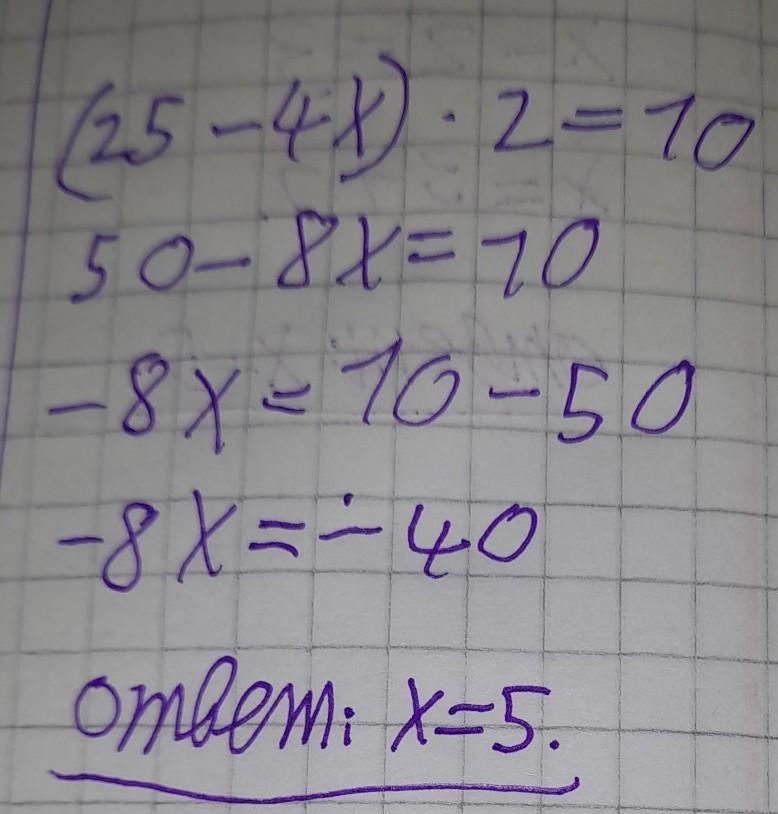 (25-4x)·2=10
50-8x=10
-8x=10-50
-8x=-40
ответ: x=5.